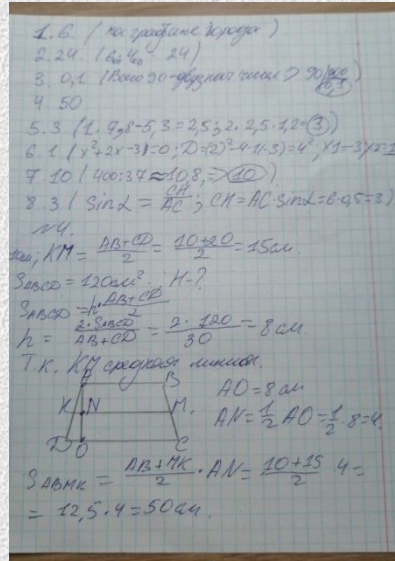 1.6. (на графике города)
2.24. (
24)
3. 0,1 (Всего 90-двузнач чисел => 90
4 50
5.3 (1. 7,8-5,3=2,5; 2. 2,5·1,2=3)
6.1 (x²+2x-3)=0; D=(2)²-4·1(-3)=4²; x1=-3
7.10 (400:37≈10,8, => 10)
8.3 (Sinα = CH/AC; CH=AC·Sinα=6·0,5=3)
№4.
KM = AB+CD/2 = 10+20/2 = 15см.
SABCD = 120см² H-?
SABCD = h · AB+CD/2
h = 2·SABCD/AB+CD = 2·120/30 = 8 см.
Т.к. КМ средняя линия.
B
AO = 8 см
K N M.
AN = 1/2 AO = 1/2 · 8 = 4.
D O C
SABMK = AB+MK/2 · AN = 10+15/2 · 4 =
= 12,5 · 4 = 50 см.